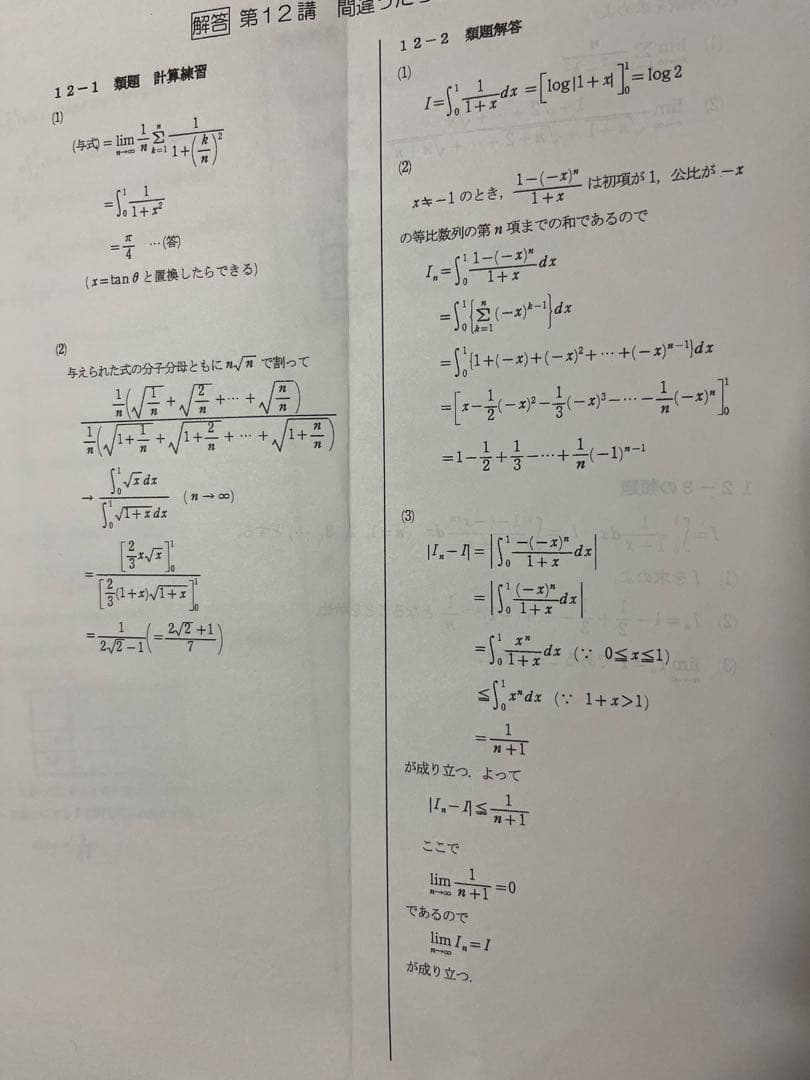 解答 第12講 間違うたら
12-1 類題 計算練習
(1)
(与式)=lim_{n→∞} 1/n Σ_{k=1}^{n} 1/(1+(k/n)^2)
=∫_0^1 1/(1+x^2)
=π/4 …(答)
(x=tanθと置換したらできる)
(2)
与えられた式の分子分母ともに n√n で割って
(1/n(√(1/n)+√(2/n)+…+√(n/n)))/(1/n(√(1+1/n)+√(1+2/n)+…+√(1+n/n)))
→ (∫_0^1 √x dx)/(∫_0^1 √(1+x) dx) (n→∞)
=[2/3 x√x]_0^1/[2/3 (1+x)√(1+x)]_0^1
=1/(2√2-1)(=(2√2+1)/7)
12-2 類題解答
(1)
I=∫_0^1 1/(1+x) dx=[log|1+x|]_0^1=log2
(2)
x≠-1のとき, (1-(-x)^n)/(1+x) は初項が1, 公比が-x
の等比数列の第n項までの和であるので
I_n=∫_0^1 (1-(-x)^n)/(1+x) dx
=∫_0^1 {Σ_{k=1}^{n} (-x)^{k-1}}dx
=∫_0^1 {1+(-x)+(-x)^2+…+(-x)^{n-1}}dx
=[x-1/2(-x)^2-1/3(-x)^3-…-1/n(-x)^n]_0^1
=1-1/2+1/3-…+1/n(-1)^{n-1}
(3)
|I_n-I|=|∫_0^1 (-(-x)^n)/(1+x) dx|
=|∫_0^1 ((-x)^n)/(1+x) dx|
=∫_0^1 x^n/(1+x) dx (∵ 0≦x≦1)
≦∫_0^1 x^n dx (∵ 1+x>1)
=1/(n+1)
が成り立つ. よって
|I_n-I|≦1/(n+1)
ここで
lim_{n→∞} 1/(n+1)=0
であるので
lim_{n→∞} I_n=I
が成り立つ.